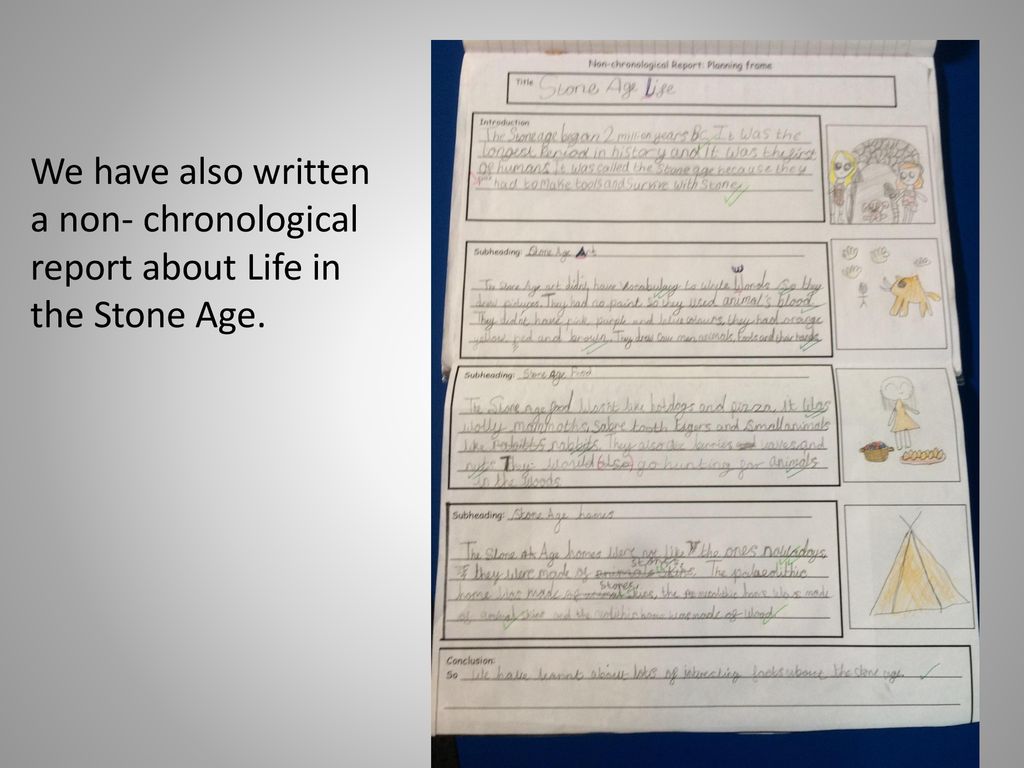 We have also written
a non- chronological
report about Life in
the Stone Age.
Non-chronological Report: Planning frame
Title Stone Age Life
Introduction
The Stone age began 2 million years BC. It was the
longest Period in history and it was the first
of humans. It was called the Stone age because they
had to make tools and Survive with Stone.
Subheading: Stone Age Art
The Stone Age art didn't have vocabulary to write Words So they
drew pictures. They had no paint so they used animal's blood.
They didn't have pink, purple and blue colours, they had orange
yellow, red and brown. They drew cave men, animals, and their hands.
Subheading: Stone Age Food
The Stone Age food wasn't like hotdogs and pizza, it was
wolly mammoths, Sabre tooth tigers and Small animals
like rabbits. They also berries and
nuts They would (also) go hunting for animals
in the woods
Subheading: Stone Age homes
The Stone Age homes were no like the ones nowadays,
stones
they were made of animals skins. The palaeolithic
stones
home was made of the home was made
of animal skins and the home was made of wood
Conclusion:
So We have learnt about lots of facts about the stone age.